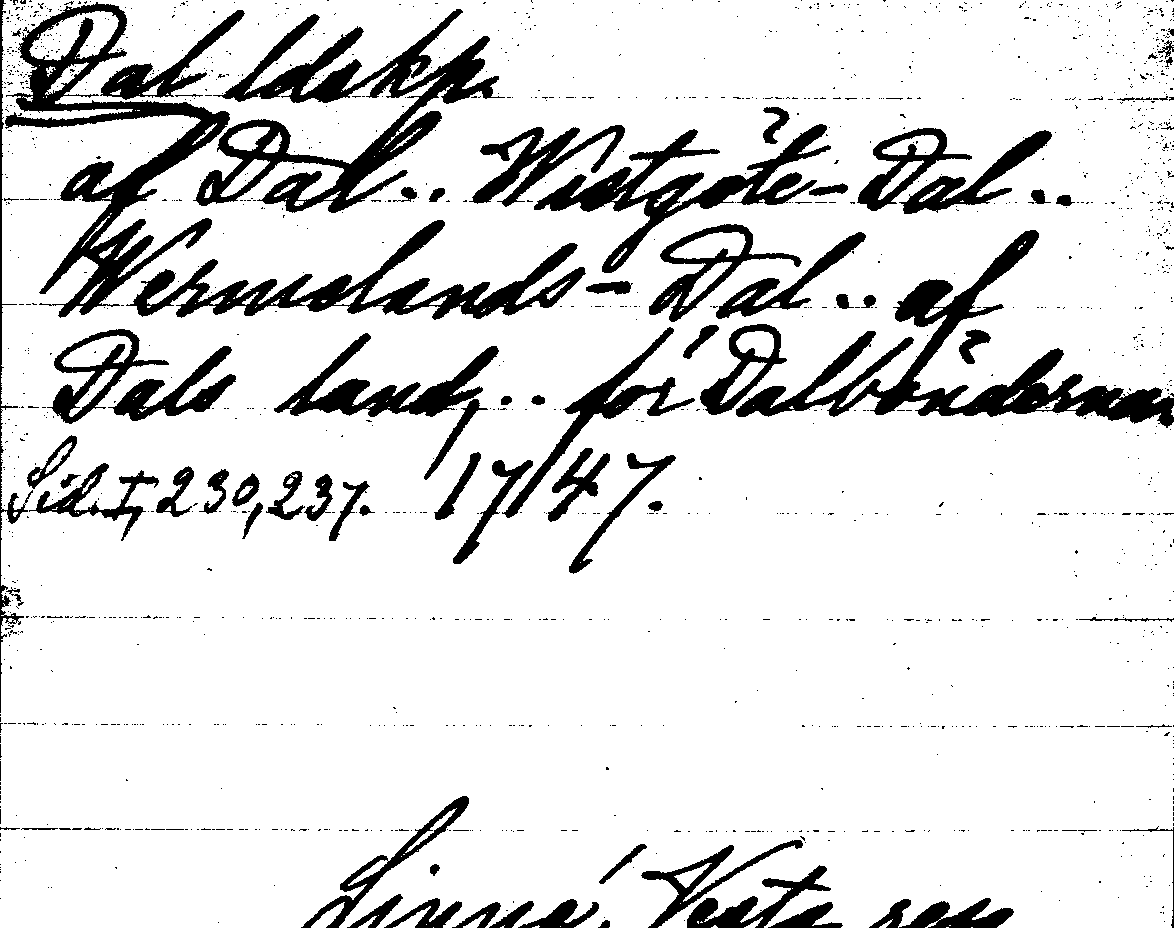 Dal ldskp.
af Dal.. Wästgöte-Dal..
Wermelands-Dal.. af
Dals land,.. för Dalbönderna
Sid. I, 230, 237. 1747.
Linné, Västg. resa